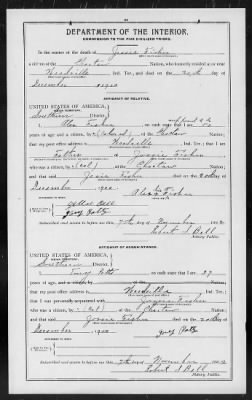 DEPARTMENT OF THE INTERIOR.
COMMISSION TO THE FIVE CIVILIZED TRIBES.
In the matter of the death of Jessie Fisher
a citizen of the Choctaw Nation, who formerly resided at or near
Woodville Ind. Ter., and died on the 20th day of
December, 1900
AFFIDAVIT OF RELATIVE.
UNITED STATES OF AMERICA,
INDIAN TERRITORY,
Southern District.
I, Alex Fisher, on oath state that I am
years of age and a citizen, by blood, of the Choctaw Nation;
that my post office address is Woodville, Ind. Ter.; that I am
Father of Jessie Fisher
who was a citizen, by blood, of the Choctaw Nation;
and that said Jessie Fisher died on the 20th day of
December, 1900
Alex Fisher
Subscribed and sworn to before me this 7th day of November, 1902
Robert S. Bell
Notary Public.
AFFIDAVIT OF ACQUAINTANCE.
UNITED STATES OF AMERICA,
INDIAN TERRITORY,
Southern District.
I, on oath state that I am 27
years of age, and a citizen by
that my post office address is Woodville, Ind. Ter.;
that I was personally acquainted with Jessie Fisher
who was a citizen, by blood, of the Choctaw Nation;
and that said Jessie Fisher died on the 20th day of
December, 1900
Subscribed and sworn to before me this 7th day of November, 1902
Robert S. Bell
Notary Public.